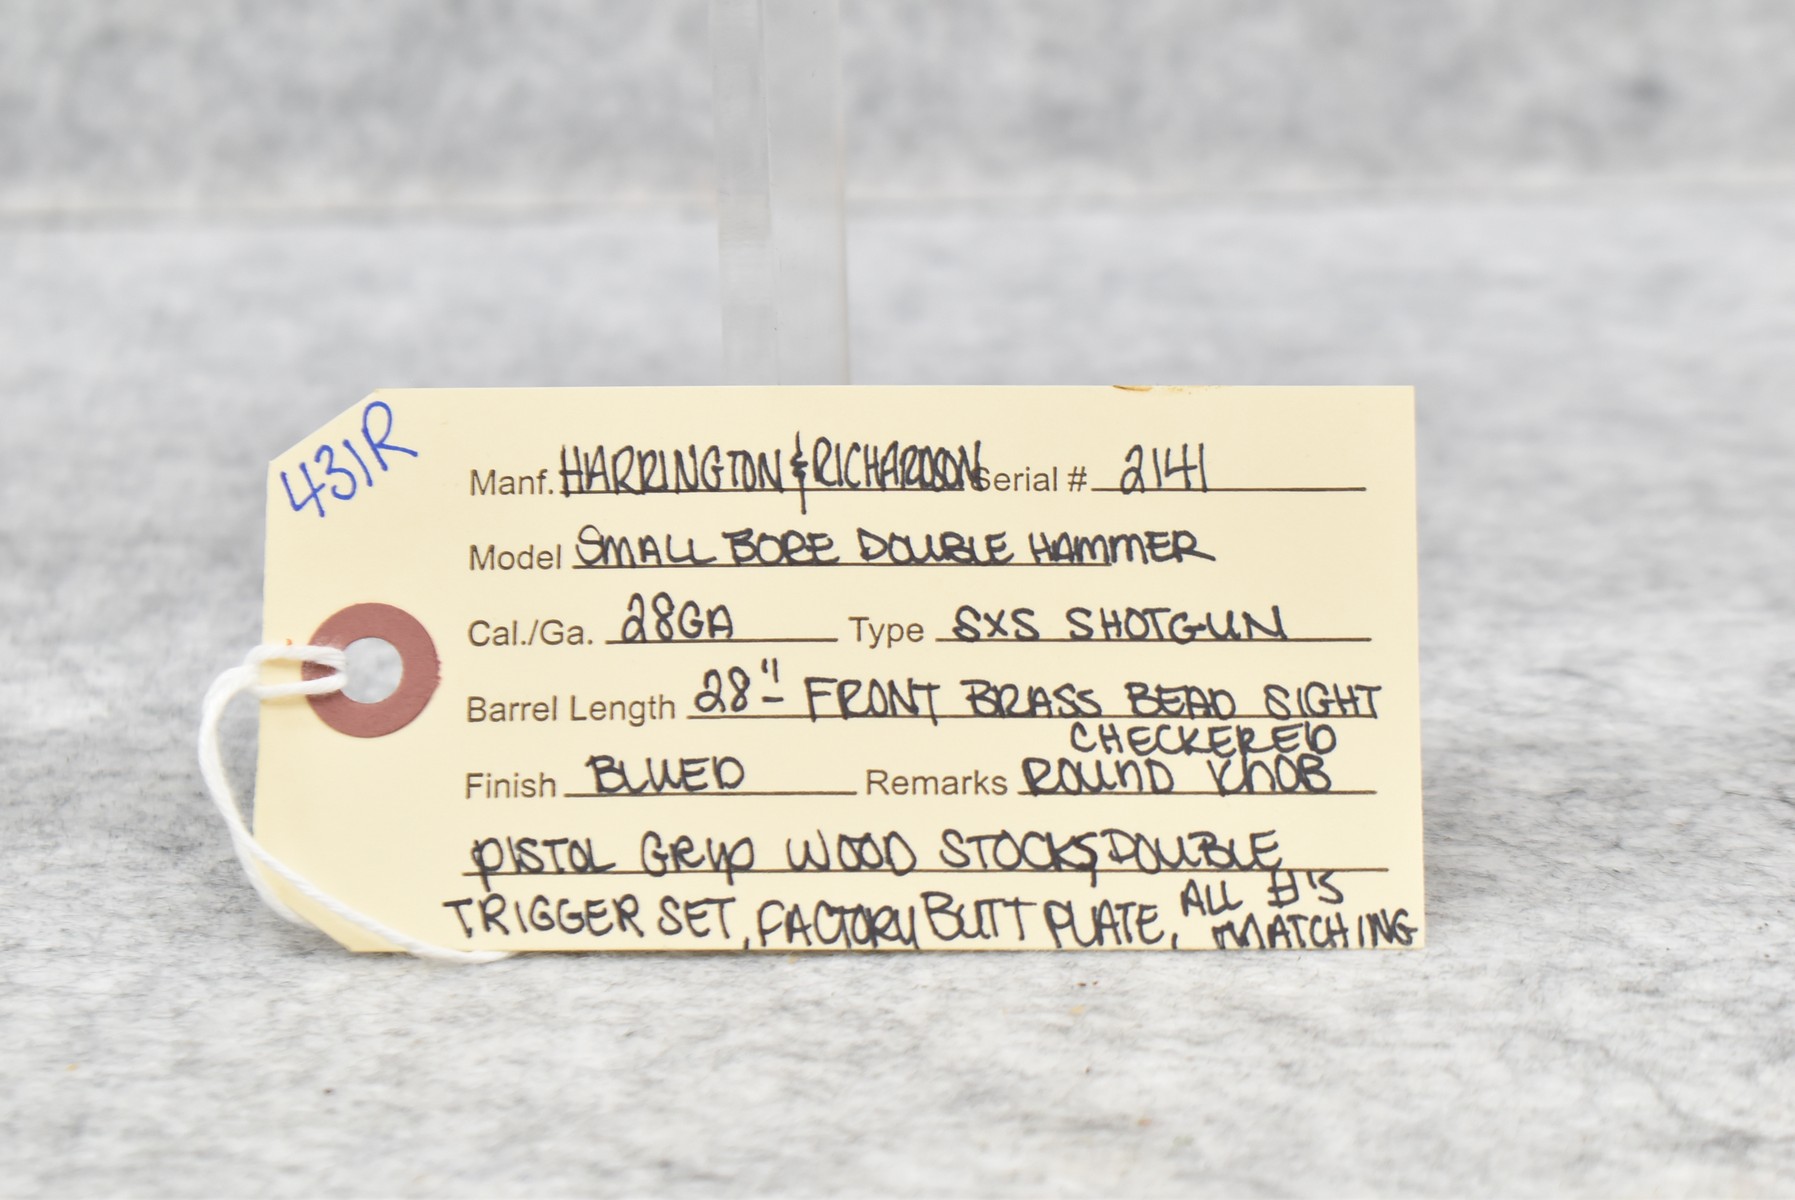 431R
Manf. HARRINGTON & RICHARDSON Serial # 2141
Model SMALL BORE DOUBLE HAMMER
Cal./Ga. 28GA Type SXS SHOTGUN
Barrel Length 28" - FRONT BRASS BEAD SIGHT
CHECKERED
Finish BLUED Remarks ROUND KNOB
PISTOL GRIP WOOD STOCKS, DOUBLE
TRIGGER SET, FACTORY BUTT PLATE, ALL #'S
MATCHING